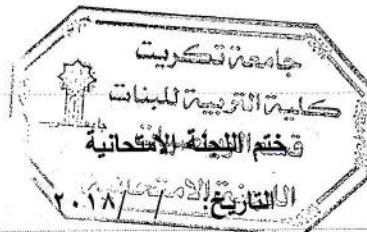 جامعة تكريت
كلية التربية للبنات
ختم اللجنة الامتحانية
التاريخ: / / ٢٠١٨